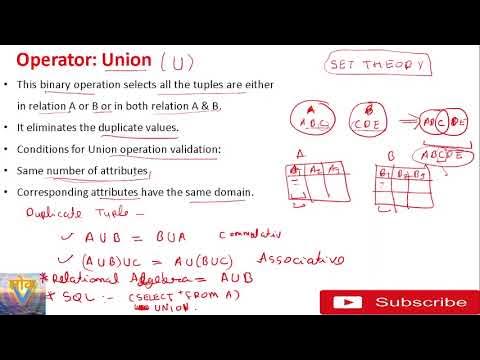 Operator: Union (U)
SET THEORY
• This binary operation selects all the tuples are either
in relation A or B or in both relation A & B.
• It eliminates the duplicate values.
• Conditions for Union operation validation:
• Same number of attributes
• Corresponding attributes have the same domain.
A
A, B, C
B
C D E
AB C DE
ABCDE
A
A1 A2 A3
B
B1 B2 B3
Duplicate Tuple -
✓ A U B = B U A Commutativ
✓ (A U B) U C = A U (B U C) Associative
* Relational Algebra = A U B
* SQL :- (SELECT * FROM A)
UNION.
Subscribe